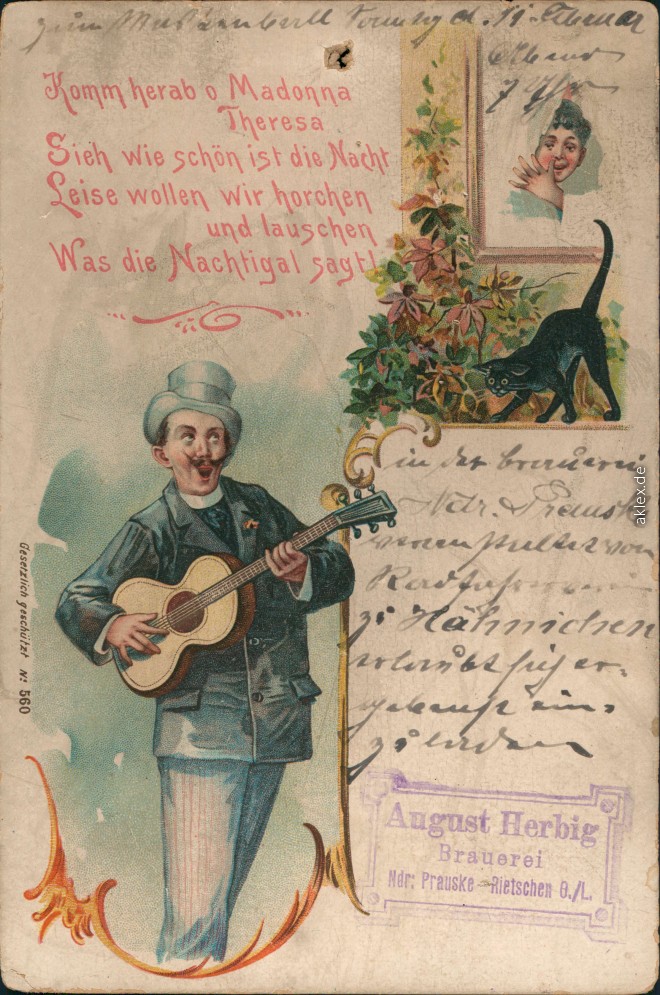 zum Maskenball Sonntag d. 11. Februar
Abend
7 Uhr
Komm herab o Madonna
Theresa
Sieh wie schön ist die Nacht
Leise wollen wir horchen
und lauschen
Was die Nachtigal sagt!
in der Brauerei
Ndr. Prauske
veranstaltet vom
Radfahrerverein
zu Hähnichen
erlaubt sich er-
gebenst ein-
zuladen
Gesetzlich geschützt № 560
August Herbig
Brauerei
Ndr: Prauske-Rietschen O./L.
aklex.de